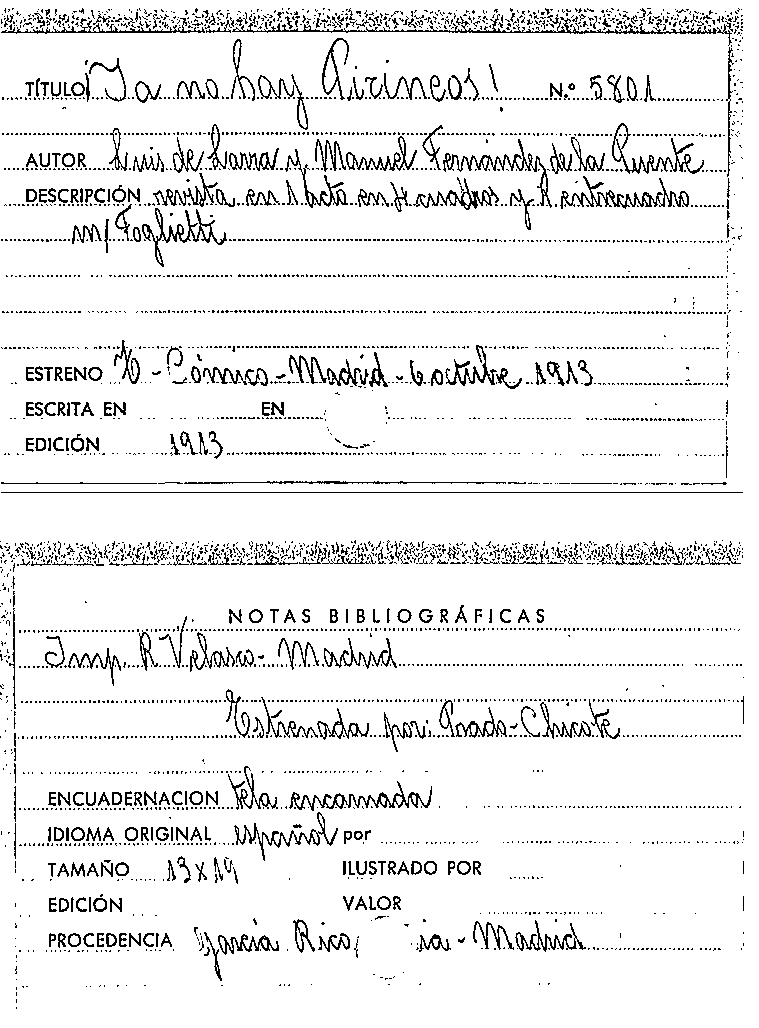 TÍTULO ¡Ya no hay Pirineos! N.º 5801
AUTOR Luis de Larra y Manuel Fernández de la Puente
DESCRIPCIÓN revista en 1 acto en 4 cuadros y 1 entrecuadro
m/ Foglietti
ESTRENO Tº - Cómico - Madrid - 6 octubre 1913
ESCRITA EN EN
EDICIÓN 1913
NOTAS BIBLIOGRÁFICAS
Imp. R Velasco - Madrid
Estrenada por: Prado-Chicote
ENCUADERNACION tela encarnada
IDIOMA ORIGINAL español por
TAMAÑO 13 x 19 ILUSTRADO POR
EDICIÓN VALOR
PROCEDENCIA García Rico, ia - Madrid